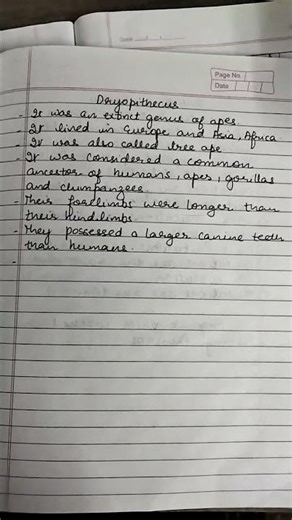 Date
Page No.
Date
Dryopithecus
- It was an extinct genus of apes.
- It lived in Europe and Asia, Africa
- It was also called tree ape
- It was considered a common
ancestor of humans, apes, gorillas
and chimpanzees.
- Their forelimbs were longer than
their hindlimbs.
- They possessed a larger canine teeth
than humans.
-